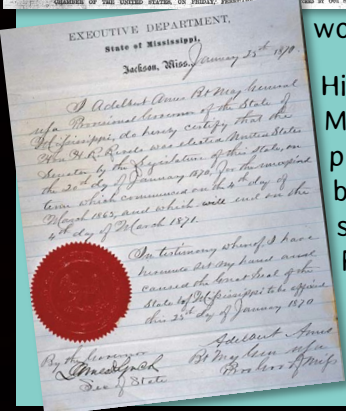 CHAMBER OF THE UNITED STATES, ON FRIDAY,
EXECUTIVE DEPARTMENT,
State of Mississippi,
Jackson, Miss. January 25th 1870.
I Adelbert Ames Bt Maj General
USA Provisional Governor of the State of
Mississippi, do hereby certify that the
Hon H. R. Revels was elected United States
Senator by the Legislature of this State, on
the 20th day of January 1870, for the unexpired
term which commenced on the 4th day of
March 1865, and which will end on the
4th day of March 1871.
In testimony whereof I have
hereunto set my hand and
caused the Great Seal of the
State of Mississippi to be affixed
this 25th day of January 1870
Adelbert Ames
Bt Maj Genl USA
Prov Gov of Miss
By the Governor
James Lynch
Sec of State
wo
Hi
M
p
b
s